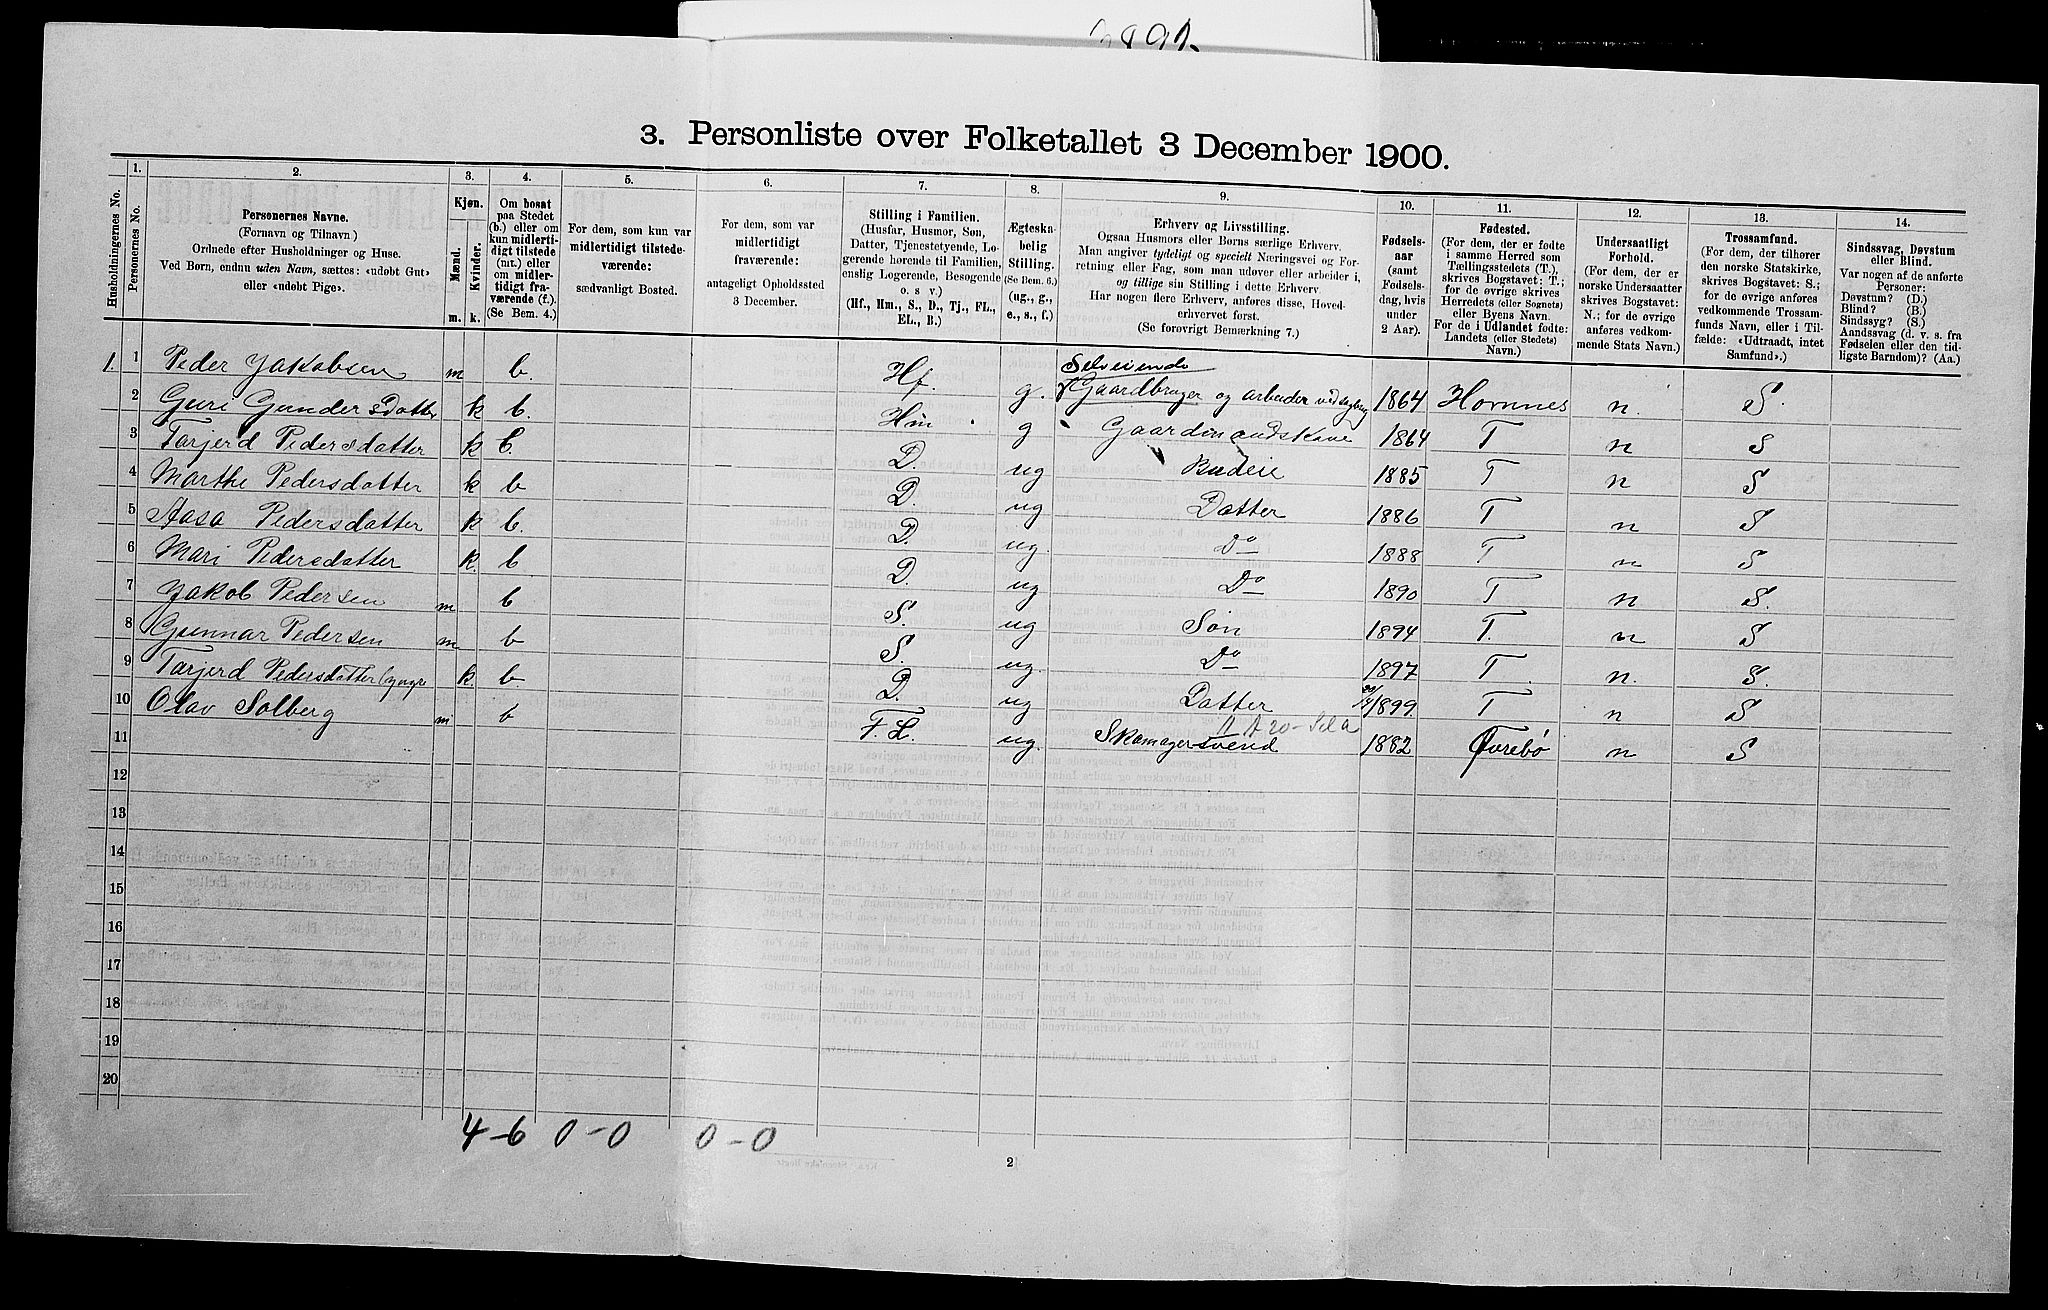 3. Personliste over Folketallet 3 December 1900.
Husholdningernes No.
1. Personernes No.
2. Personernes Navne. (Fornavn og Tilnavn) Ordnede efter Husholdninger og Huse. Ved Børn, endnu uden Navn, sættes: «udøbt Gut» eller «udøbt Pige».
3. Kjøn. Mænd. m. Kvinder. k.
4. Om bosat paa Stedet (b.) eller om kun midlertidigt tilstede (mt.) eller om midlertidigt fraværende (f.). (Se Bem. 4.)
5. For dem, som kun var midlertidigt tilstedeværende: sædvanligt Bosted.
6. For dem, som var midlertidigt fraværende: antageligt Opholdssted 3 December.
7. Stilling i Familien. (Husfar, Husmor, Søn, Datter, Tjenestetyende, Logerende hørende til Familien, enslig Logerende, Besøgende o. s. v.) (Hf., Hm., S., D., Tj., FL., EL., B.)
8. Ægteskabelig Stilling. (Se Bem. 6.) (ug., g., e., s., f.)
9. Erhverv og Livsstilling. Ogsaa Husmors eller Børns særlige Erhverv. Man angiver tydeligt og specielt Næringsvei og Forretning eller Fag, som man udøver eller arbeider i, og tillige sin Stilling i dette Erhverv. Har nogen flere Erhverv, anføres disse, Hovederhvervet først. (Se forøvrigt Bemærkning 7.)
10. Fødselsaar (samt Fødselsdag, hvis under 2 Aar).
11. Fødested. (For dem, der er fødte i samme Herred som Tællingsstedets (T.), skrives Bogstavet: T.; for de øvrige skrives Herredets (eller Sognets) eller Byens Navn. For de i Udlandet fødte: Landets (eller Stedets) Navn.)
12. Undersaatligt Forhold. (For dem, der er norske Undersaatter skrives Bogstavet: N.; for de øvrige anføres vedkommende Stats Navn.)
13. Trossamfund. (For dem, der tilhører den norske Statskirke, skrives Bogstavet: S.; for de øvrige anføres vedkommende Trossamfunds Navn, eller i Tilfælde: «Udtraadt, intet Samfund».)
14. Sindssvag, Døvstum eller Blind. Var nogen af de anførte Personer: Døvstum? (D.) Blind? (B.) Sindssyg? (S.) Aandssvag (d. v. s. fra Fødselen eller den tidligste Barndom)? (Aa.)
1. 1 Peder Jakobsen m b. Hf. g. Selveiende Gaardbruger og arbeider ved sagbrug 1864 Hornnes n. S.
2 Guri Gundersdatter k b. Hm g Gaardmandskone 1864 T n S
3 Tarjerd Pedersdatter k b. D. ug Budeie 1885 T n S
4 Marthe Pedersdatter k b D. ug Datter 1886 T n S
5 Aasa Pedersdatter k b. D. ug. Do 1888 T n S
6 Mari Pedersdatter k. b D. ug Do 1890 T n S.
7 Jakob Pedersen m b S. ug Søn 1894 T. n S
8 Gunnar Pedersen m b S. ug. Do 1897 T. n. S.
9 Tarjerd Pedersdatter (yngre k. b. D. ug Datter 1899 T n S
10 Olav Solberg m b F. L. ug. Skomagersvend 1882 Øvrebø n S
11
12
13
14
15
16
17
18
19
20
4-6 0-0 0-0
2